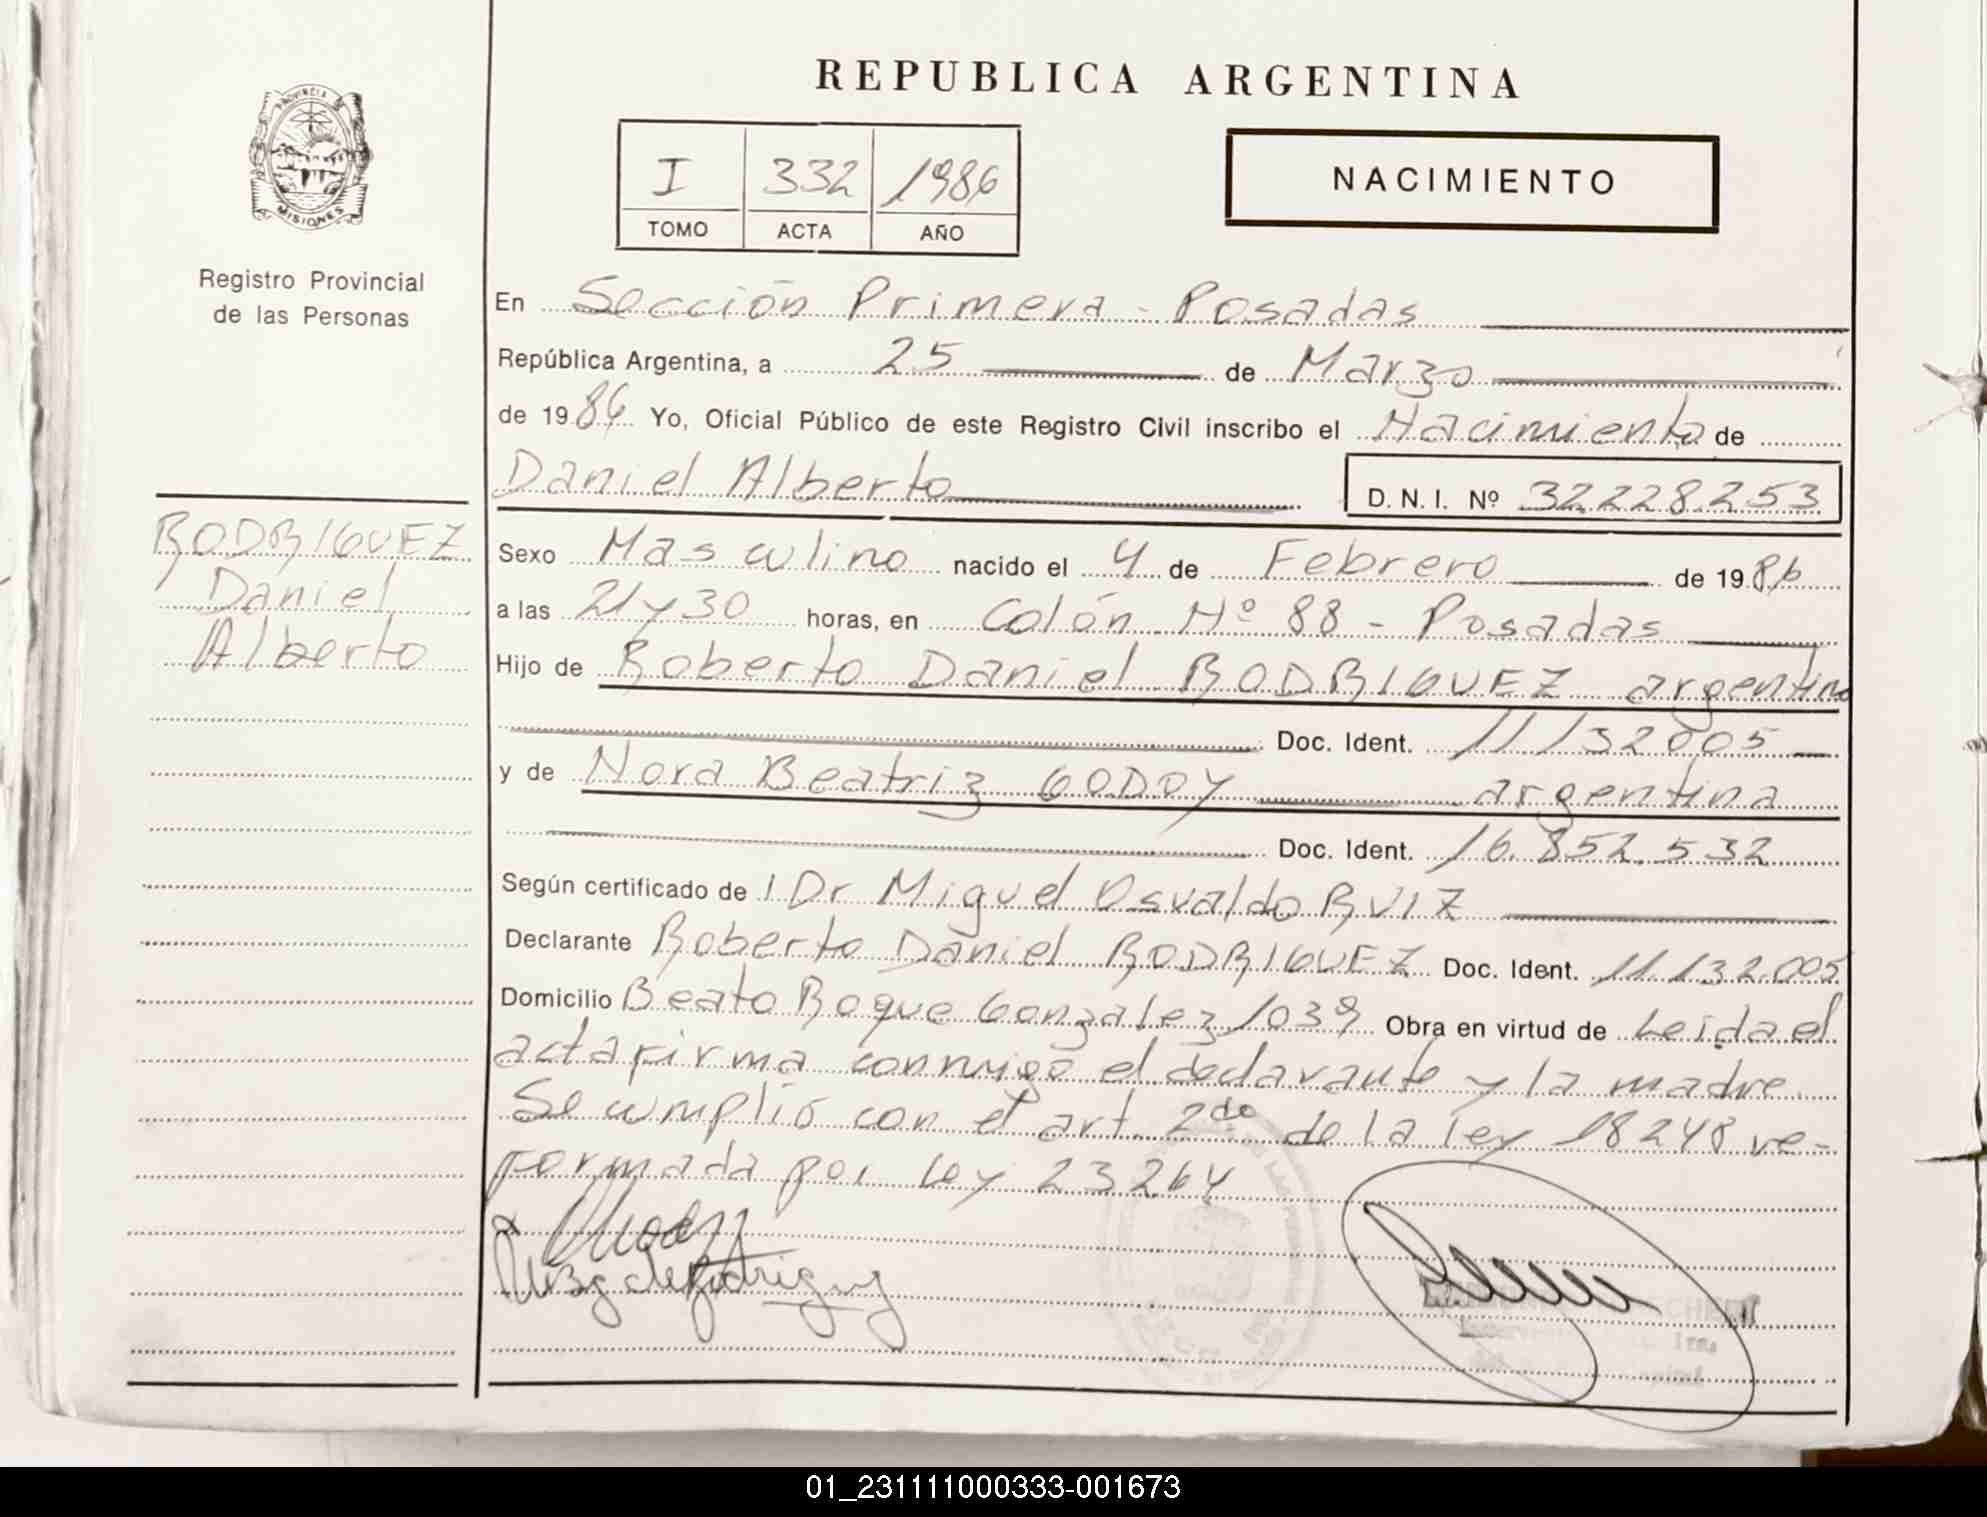 REPUBLICA ARGENTINA
PROVINCIA DE
MISIONES
Registro Provincial
de las Personas
I 332 1986
TOMO ACTA AÑO
NACIMIENTO
En Sección Primera - Posadas
República Argentina, a 25 de Marzo
de 1986 Yo, Oficial Público de este Registro Civil inscribo el Nacimiento de
Daniel Alberto D.N.I. Nº 32228253
RODRIGUEZ
Daniel
Alberto
Sexo Masculino nacido el 4 de Febrero de 1986
a las 21 y 30 horas, en Colón Nº 88 - Posadas
Hijo de Roberto Daniel RODRIGUEZ argentino
Doc. Ident. 11132005
y de Nora Beatriz GODOY argentina
Doc. Ident. 16.852.532
Según certificado de l Dr Miguel Osvaldo RUIZ
Declarante Roberto Daniel RODRIGUEZ Doc. Ident. 11.132.005
Domicilio Beato Roque Gonzalez 1039 Obra en virtud de Leida el
acta firma conmigo el declarante y la madre.
Se cumplió con el art. 2do de la ley 18248 re-
formada por Ley 23264
01_231111000333-001673